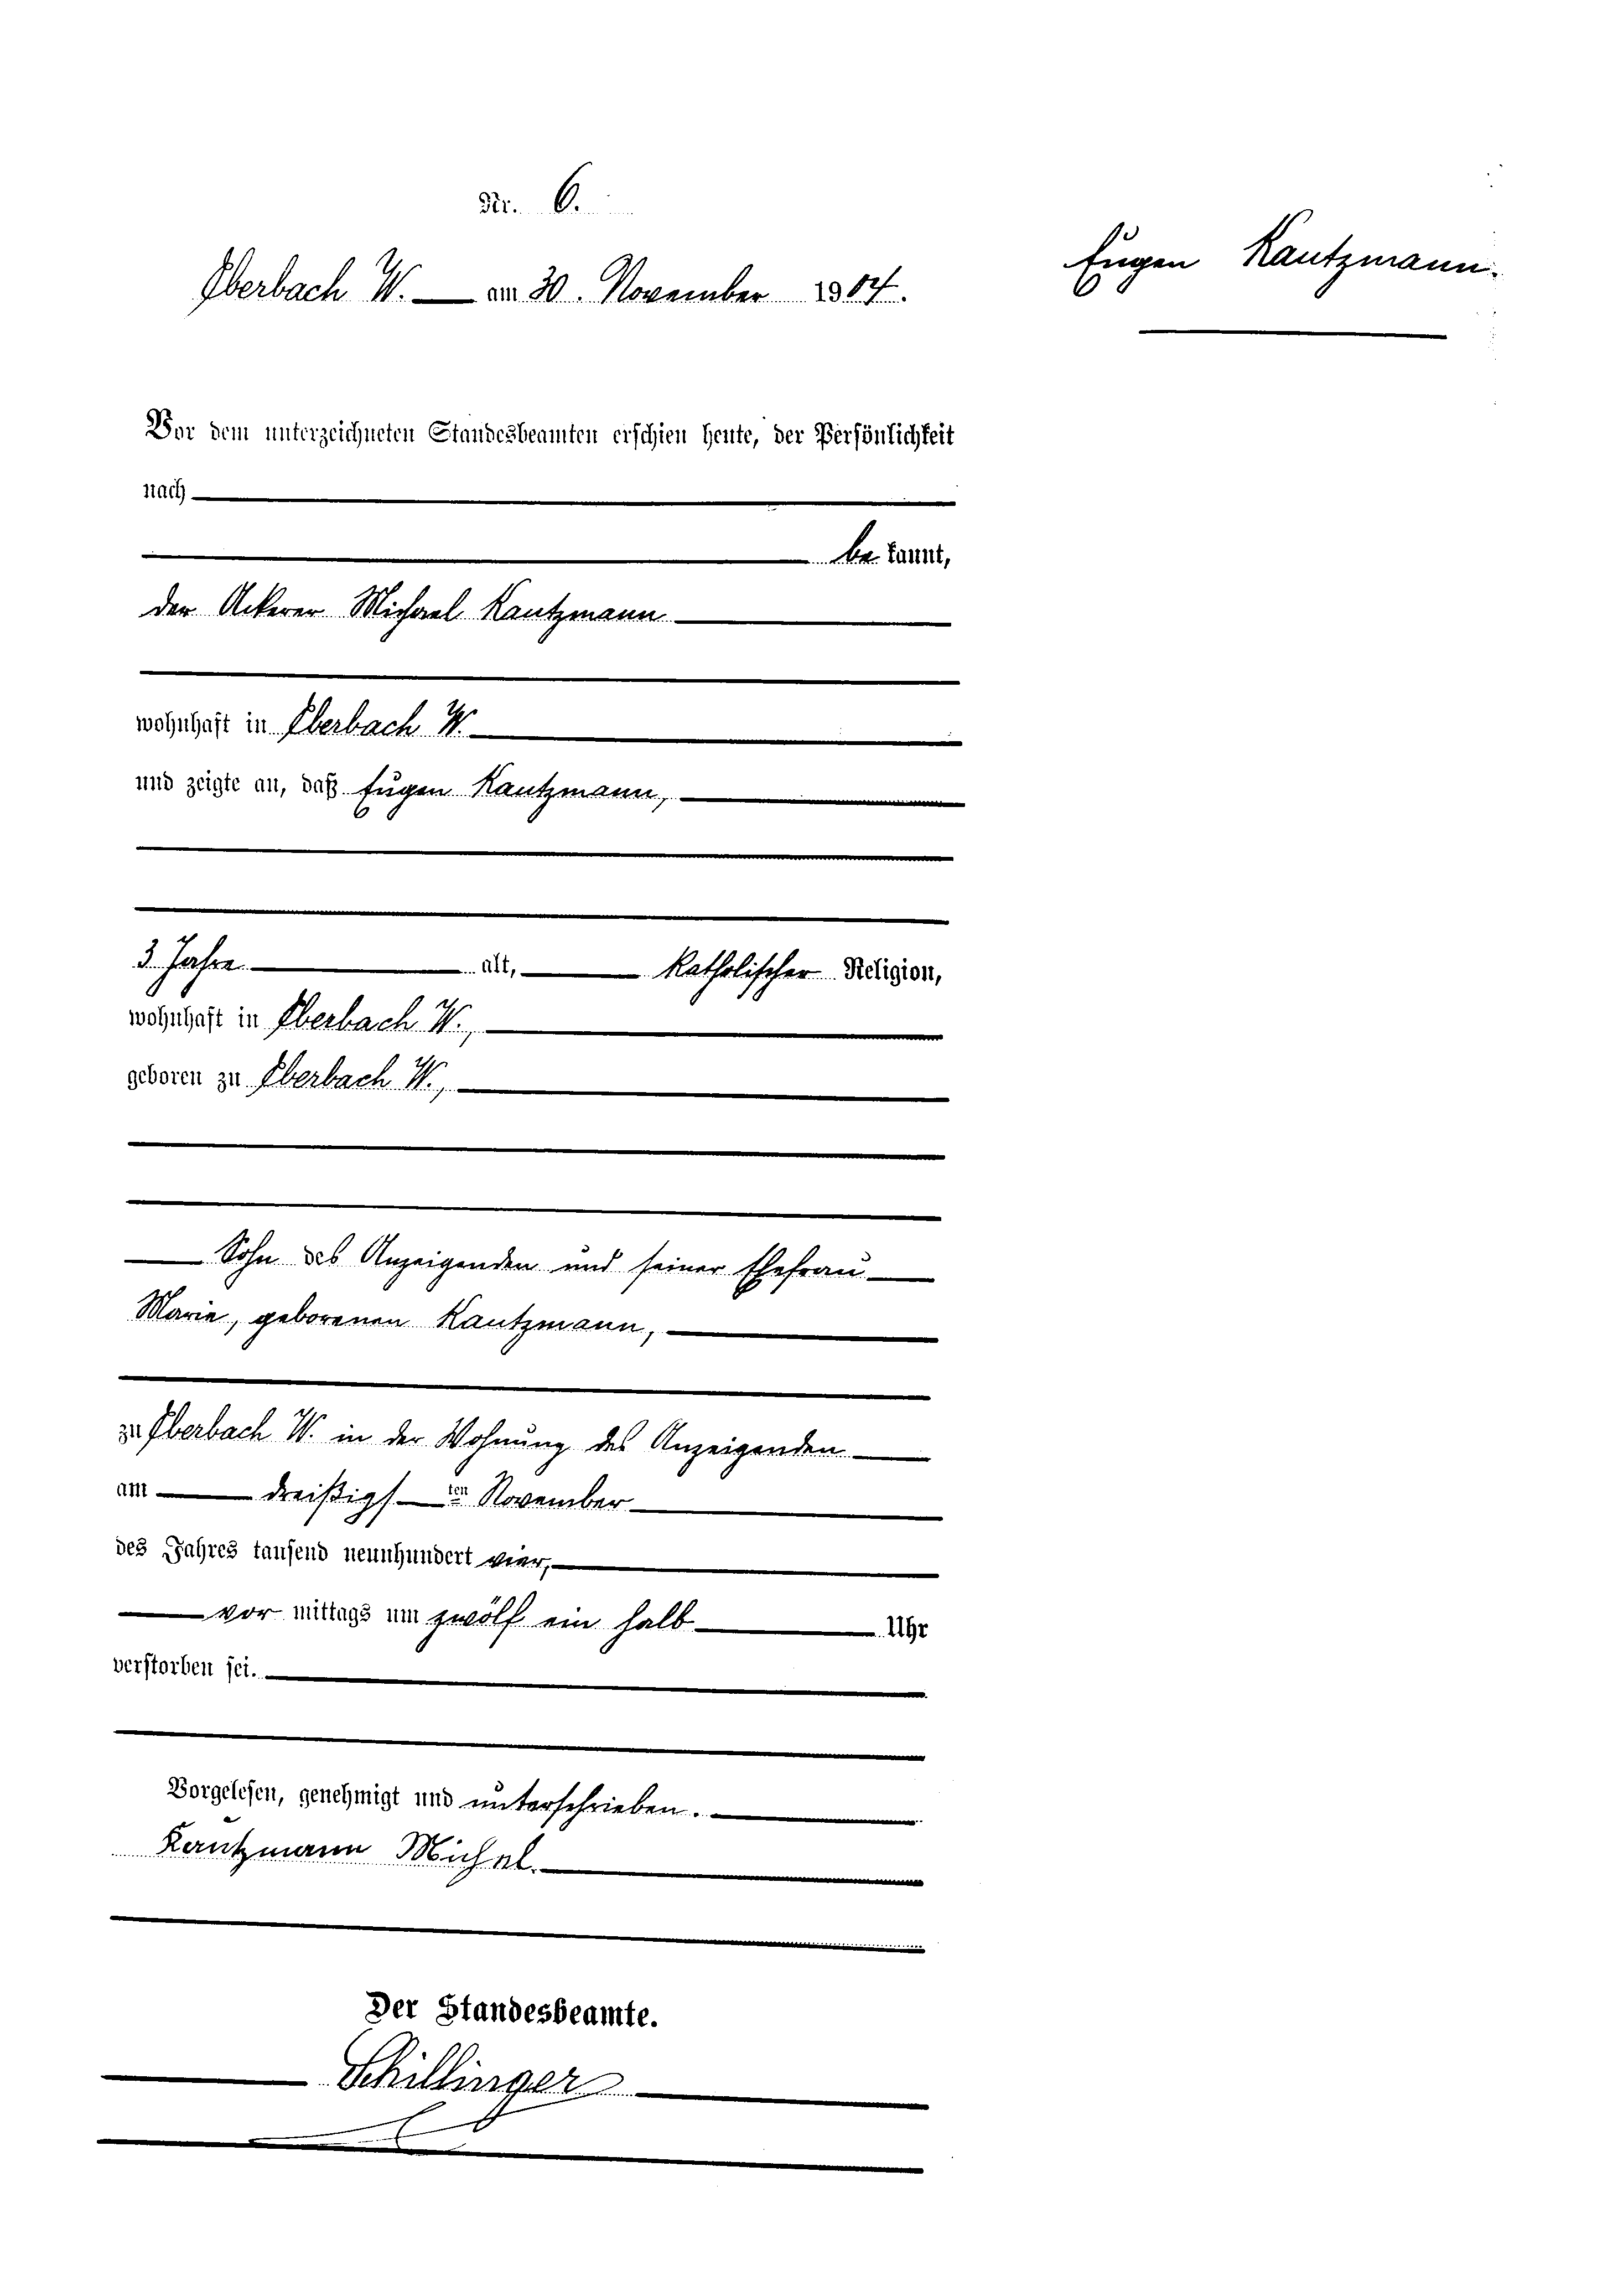 Nr. 6.
Eberbach W. am 30. November 1904.
Eugen Kautzmann.
Vor dem unterzeichneten Standesbeamten erschien heute, der Persönlichkeit
nach
be kannt,
der Ackerer Michael Kautzmann
wohnhaft in Eberbach W.
und zeigte an, daß Eugen Kautzmann,
3 Jahre alt, katholischer Religion,
wohnhaft in Eberbach W.,
geboren zu Eberbach W.,
Sohn des Anzeigenden und seiner Ehefrau
Marie, geborenen Kautzmann,
zu Eberbach W. in der Wohnung des Anzeigenden
am dreißigsten November
des Jahres tausend neunhundert vier,
vor mittags um zwölf ein halb Uhr
verstorben sei.
Vorgelesen, genehmigt und unterschrieben.
Kautzmann Michel.
Der Standesbeamte.
Schillinger